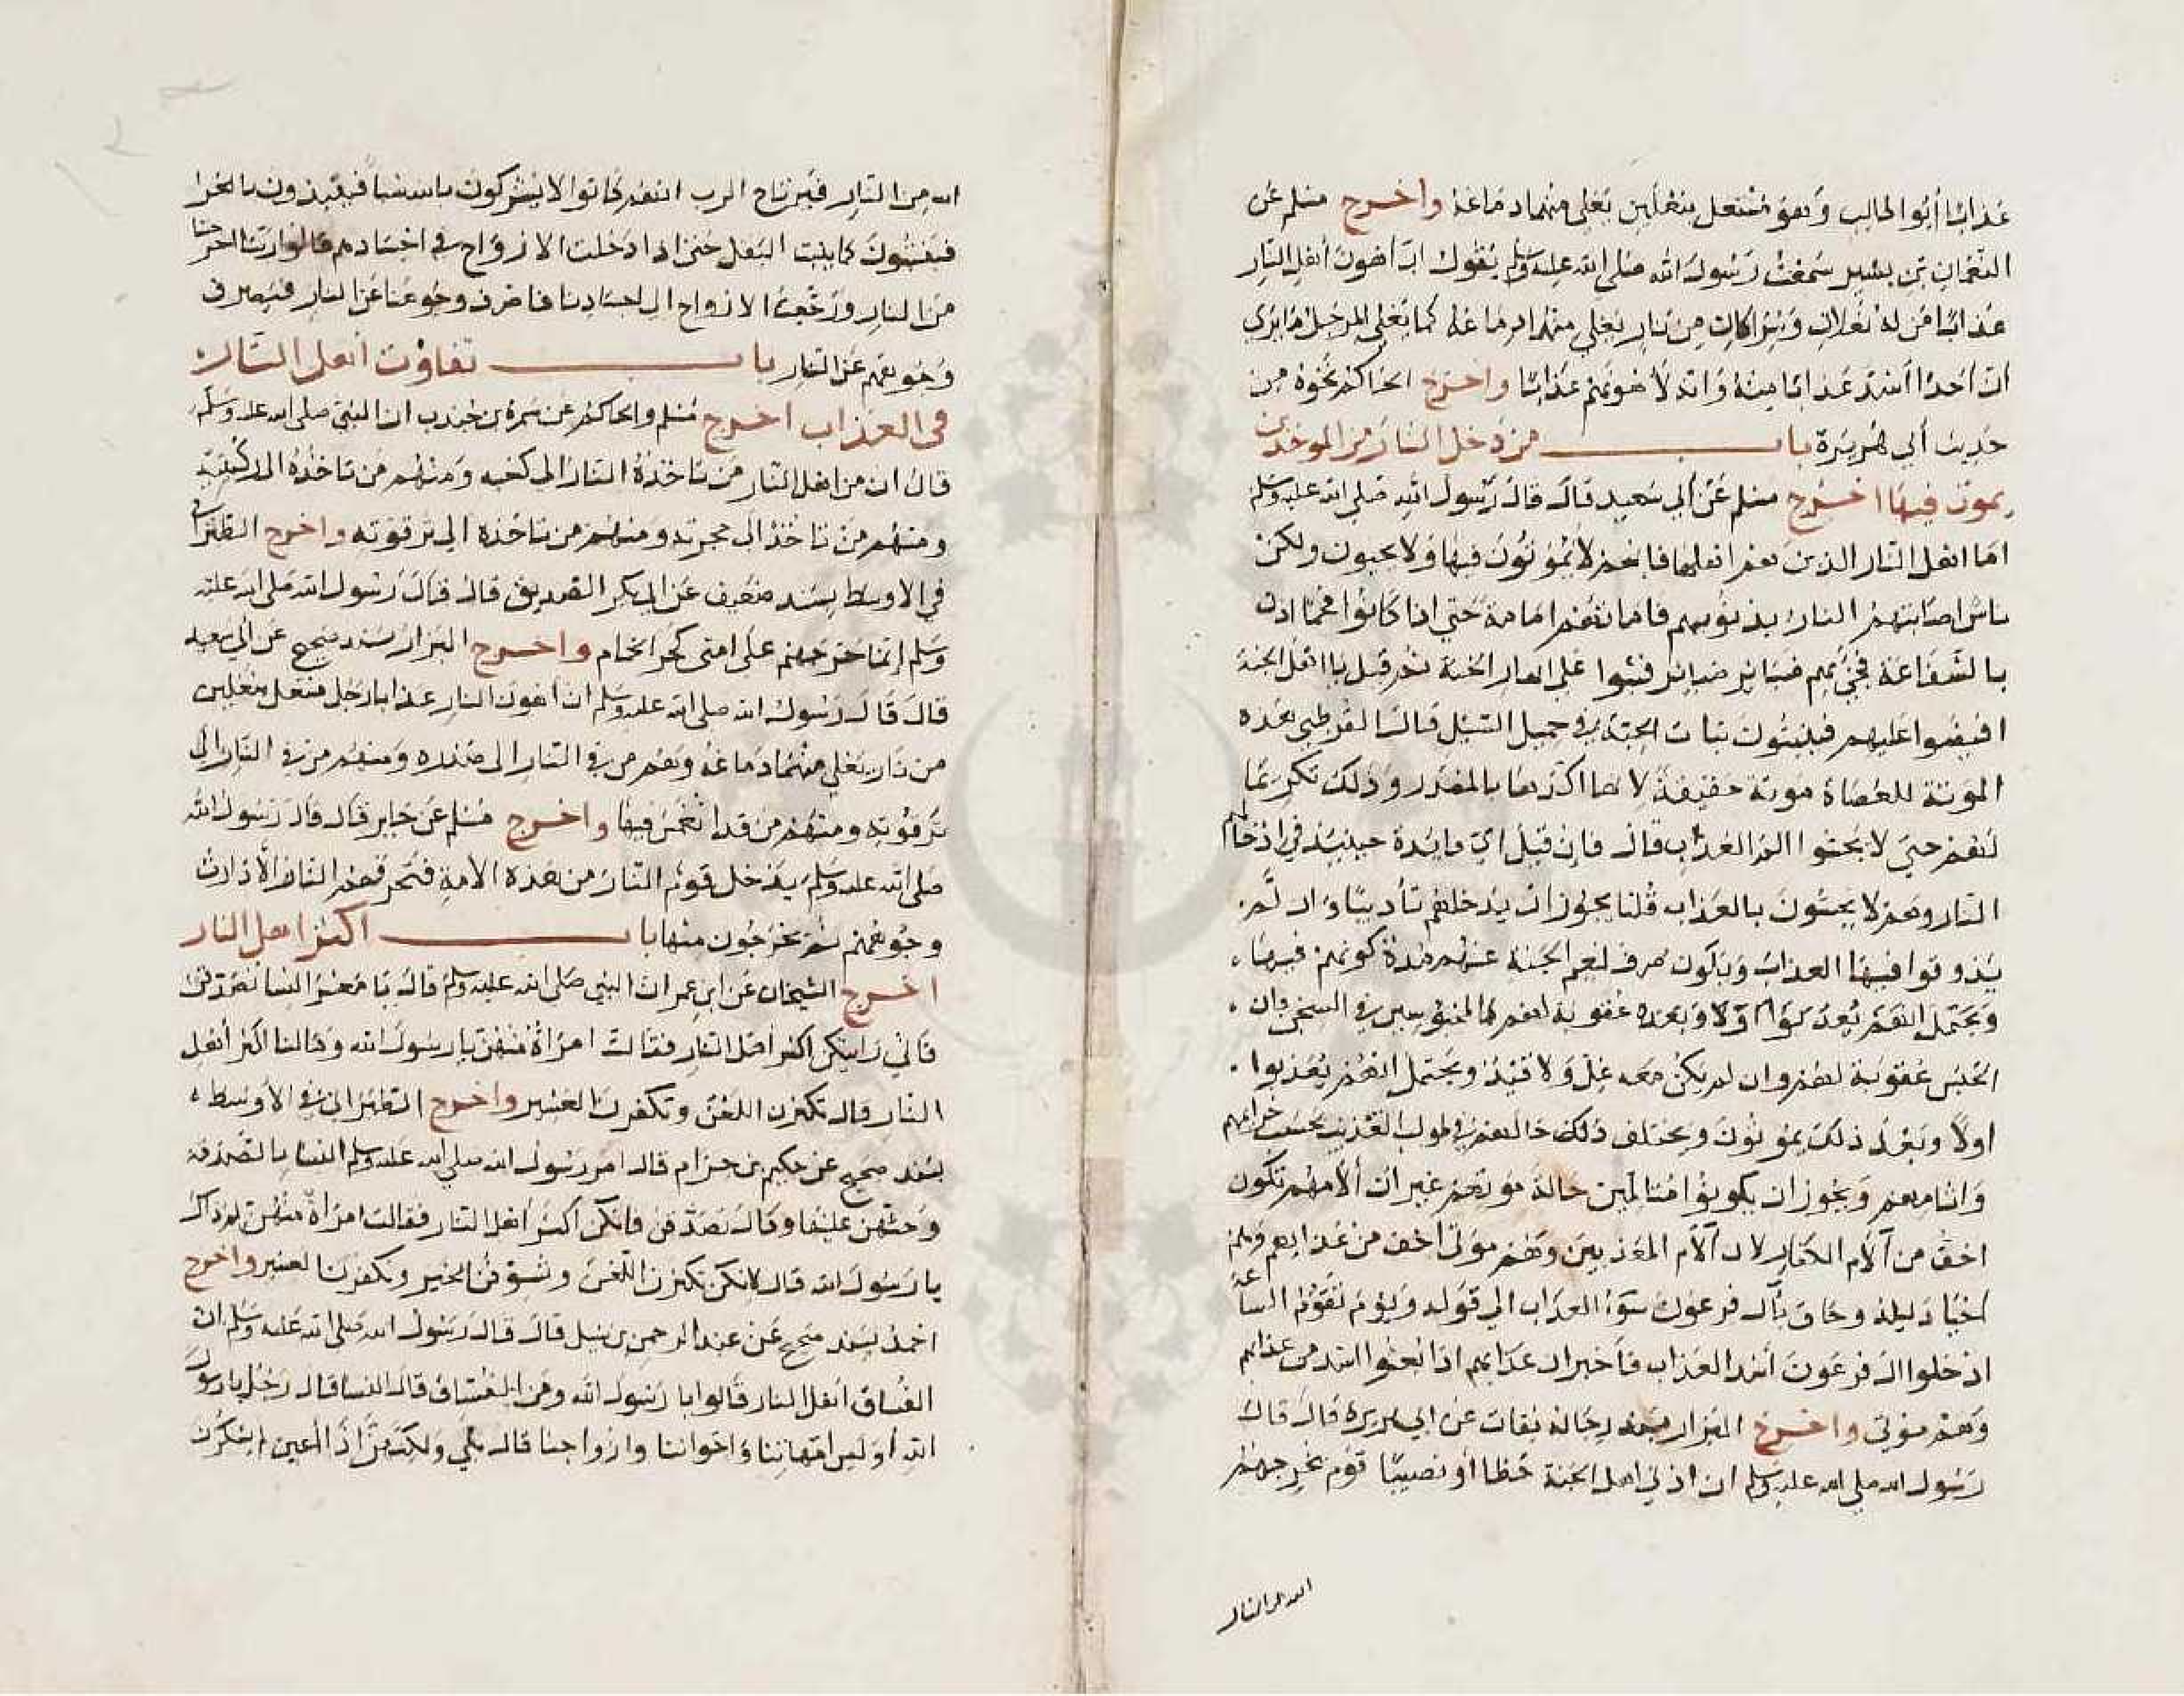 عذابا أبو طالب وهو منتعل بنعلين يغلي منهما دماغه واخرج مسلم عن
النعمان بن بشير سمعت رسول الله صلى الله عليه وسلم يقول ان أهون أهل النار
عذابا من له نعلان وشراكان من نار يغلي منهما دماغه كما يغلي المرجل ما يرى
ان احدا أشد عذابا منه وانه لأهونهم عذابا واخرج الحاكم نحوه من
حديث أبي هريرة باب من دخل النار من الموحدين
يموت فيها اخرج مسلم عن أبي سعيد قال قال رسول الله صلى الله عليه وسلم
اما اهل النار الذين هم اهلها فانهم لا يموتون فيها ولا يحيون ولكن
ناس اصابتهم النار بذنوبهم فاماتتهم اماتة حتى اذا كانوا فحما اذن
بالشفاعة فجيء بهم ضبائر ضبائر فبثوا على انهار الجنة ثم قيل يا اهل الجنة
افيضوا عليهم فينبتون نبات الحبة في حميل السيل قال القرطبي هذه
الموتة للعصاة موتة حقيقة لانها اكدها بالمصدر وذلك تكريما
لهم حتى لا يحسوا الم العذاب قال فان قيل اي فايدة حينيذ في ادخالهم
النار وهم لا يحسون بالعذاب قلنا يجوز ان يدخلهم تأديبا وان لم
يذوقوا فيها العذاب ويكون صرف نعيم الجنة عنهم مدة كونهم فيها
ويحتمل انهم
الحبس عقوبة لهم وان لم يكن معه غل ولا قيد ويحتمل انهم يعذبوا
اولا وبعد ذلك يموتون ويختلف ذلك حالهم في طول التعذيب بحسب جرائمهم
واثامهم ويجوز ان يكونوا متالمين حالة موتهم غير ان آلامهم تكون
اخف من آلام الكفار لان آلام المعذبين وهم موتى اخف من عذابهم وهم
احيا دليله وحاق بآل فرعون سوء العذاب الى قوله ويوم تقوم الساعة
ادخلوا ال فرعون أشد العذاب فأخبر ان عذابهم اذا بعثوا اشد من عذابهم
وهم موتى واخرج البزار بسند رجاله ثقات عن ابي هريرة قال قال
رسول الله صلى الله عليه وسلم ان ادنى اهل الجنة حظا أو نصيبا قوم يخرجهم
الله من النار
الله من النار فيرتاح الرب انهم كانوا لا يشركون بالله شيأ فينبذون بالعرا
فينبتون كما ينبت البقل حتى اذا دخلت الارواح في اجسادهم قالوا ربنا اخرجتنا
من النار ورجعت الارواح الى اجسادنا فاصرف وجوهنا عن النار فيصرف
وجوههم عن النار باب تفاوت أهل النار
في العذاب اخرج مسلم والحاكم عن سمرة بن جندب ان النبي صلى الله عليه وسلم
قال ان من اهل النار من تاخذه النار الى كعبه ومنهم من تاخذه الى ركبتيه
ومنهم من تاخذه الى حجزته ومنهم من تاخذه الى ترقوته واخرج الطبراني
في الاوسط بسند ضعيف عن ابي بكر الصديق قال قال رسول الله صلى الله عليه
وسلم إنما حر جهنم على امتى كحر الحمام واخرج البزار بسند صحيح عن أبي سعيد
قال قال رسول الله صلى الله عليه وسلم ان أهون النار عذابا رجل منتعل بنعلين
من نار يغلي منهما دماغه ومنهم من في النار الى صدره ومنهم من في النار الى
ترقوته ومنهم من قد انغمس فيها واخرج مسلم عن جابر قال قال رسول الله
صلى الله عليه وسلم يدخل قوم النار من هذه الامة فتحرقهم النار الا دارات
وجوههم ثم يخرجون منها باب اكثر اهل النار
اخرج الشيخان عن ابن عمر ان النبي صلى الله عليه وسلم قال يا معشر النسا تصدقن
فاني رايتكن اكثر اهل النار فقالت امرأة منهن يا رسول الله وما لنا اكثر أهل
النار قال تكثرن اللعن وتكفرن العشير واخرج الطبراني في الأوسط
بسند صحيح عن حكيم بن حزام قال امر رسول الله صلى الله عليه وسلم النسا بالصدقة
وحثهن عليها وقال تصدقن فانكن اكثر أهل النار فقالت امرأة منهن لم ذاك
يا رسول الله قال لانكن تكثرن اللعن وتسوفن الخير وتكفرن العشير واخرج
احمد بسند صحيح عن عبد الرحمن بن شبل قال قال رسول الله صلى الله عليه وسلم ان
الفساق أهل النار قالوا يا رسول الله ومن الفساق قال النسا قال رجل يا رسول
الله أو ليس امهاتنا واخواتنا وازواجنا قال بلى ولكنهن اذا